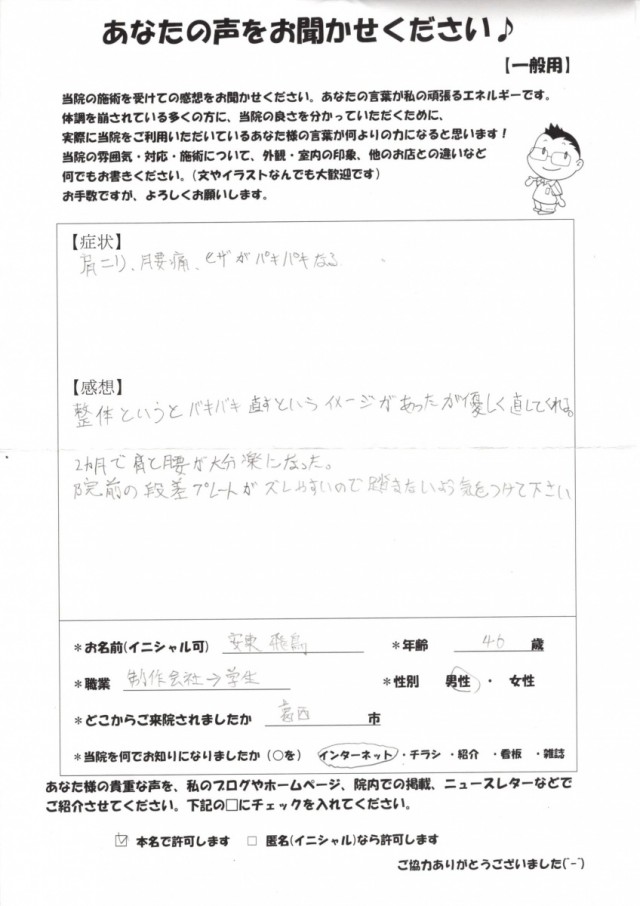 あなたの声をお聞かせください♪
【一般用】
当院の施術を受けての感想をお聞かせください。あなたの言葉が私の頑張るエネルギーです。
体調を崩されている多くの方に、当院の良さを分かっていただくために、
実際に当院をご利用いただいているあなた様の言葉が何よりの力になると思います!
当院の雰囲気・対応・施術について、外観・室内の印象、他のお店との違いなど
何でもお書きください。(文やイラストなんでも大歓迎です)
お手数ですが、よろしくお願いします。
【症状】
肩こり、腰痛、ヒザがパキパキなる
【感想】
整体というとバキバキ直すというイメージがあったが優しく直してくれる。
2ヵ月で肩と腰が大分楽になった。
院前の段差プレートがズレやすいので躓きたいよう気をつけて下さい
*お名前(イニシャル可) 安東 飛鳥 *年齢 46 歳
*職業 制作会社→学生 *性別 男性 ・ 女性
*どこからご来院されましたか 葛西 市
*当院を何でお知りになりましたか(○を) インターネット ・チラシ ・紹介 ・看板 ・雑誌
あなた様の貴重な声を、私のブログやホームページ、院内での掲載、ニュースレターなどで
ご紹介させてください。下記の□にチェックを入れてください。
☑ 本名で許可します □ 匿名(イニシャル)なら許可します
ご協力ありがとうございました(^-^)